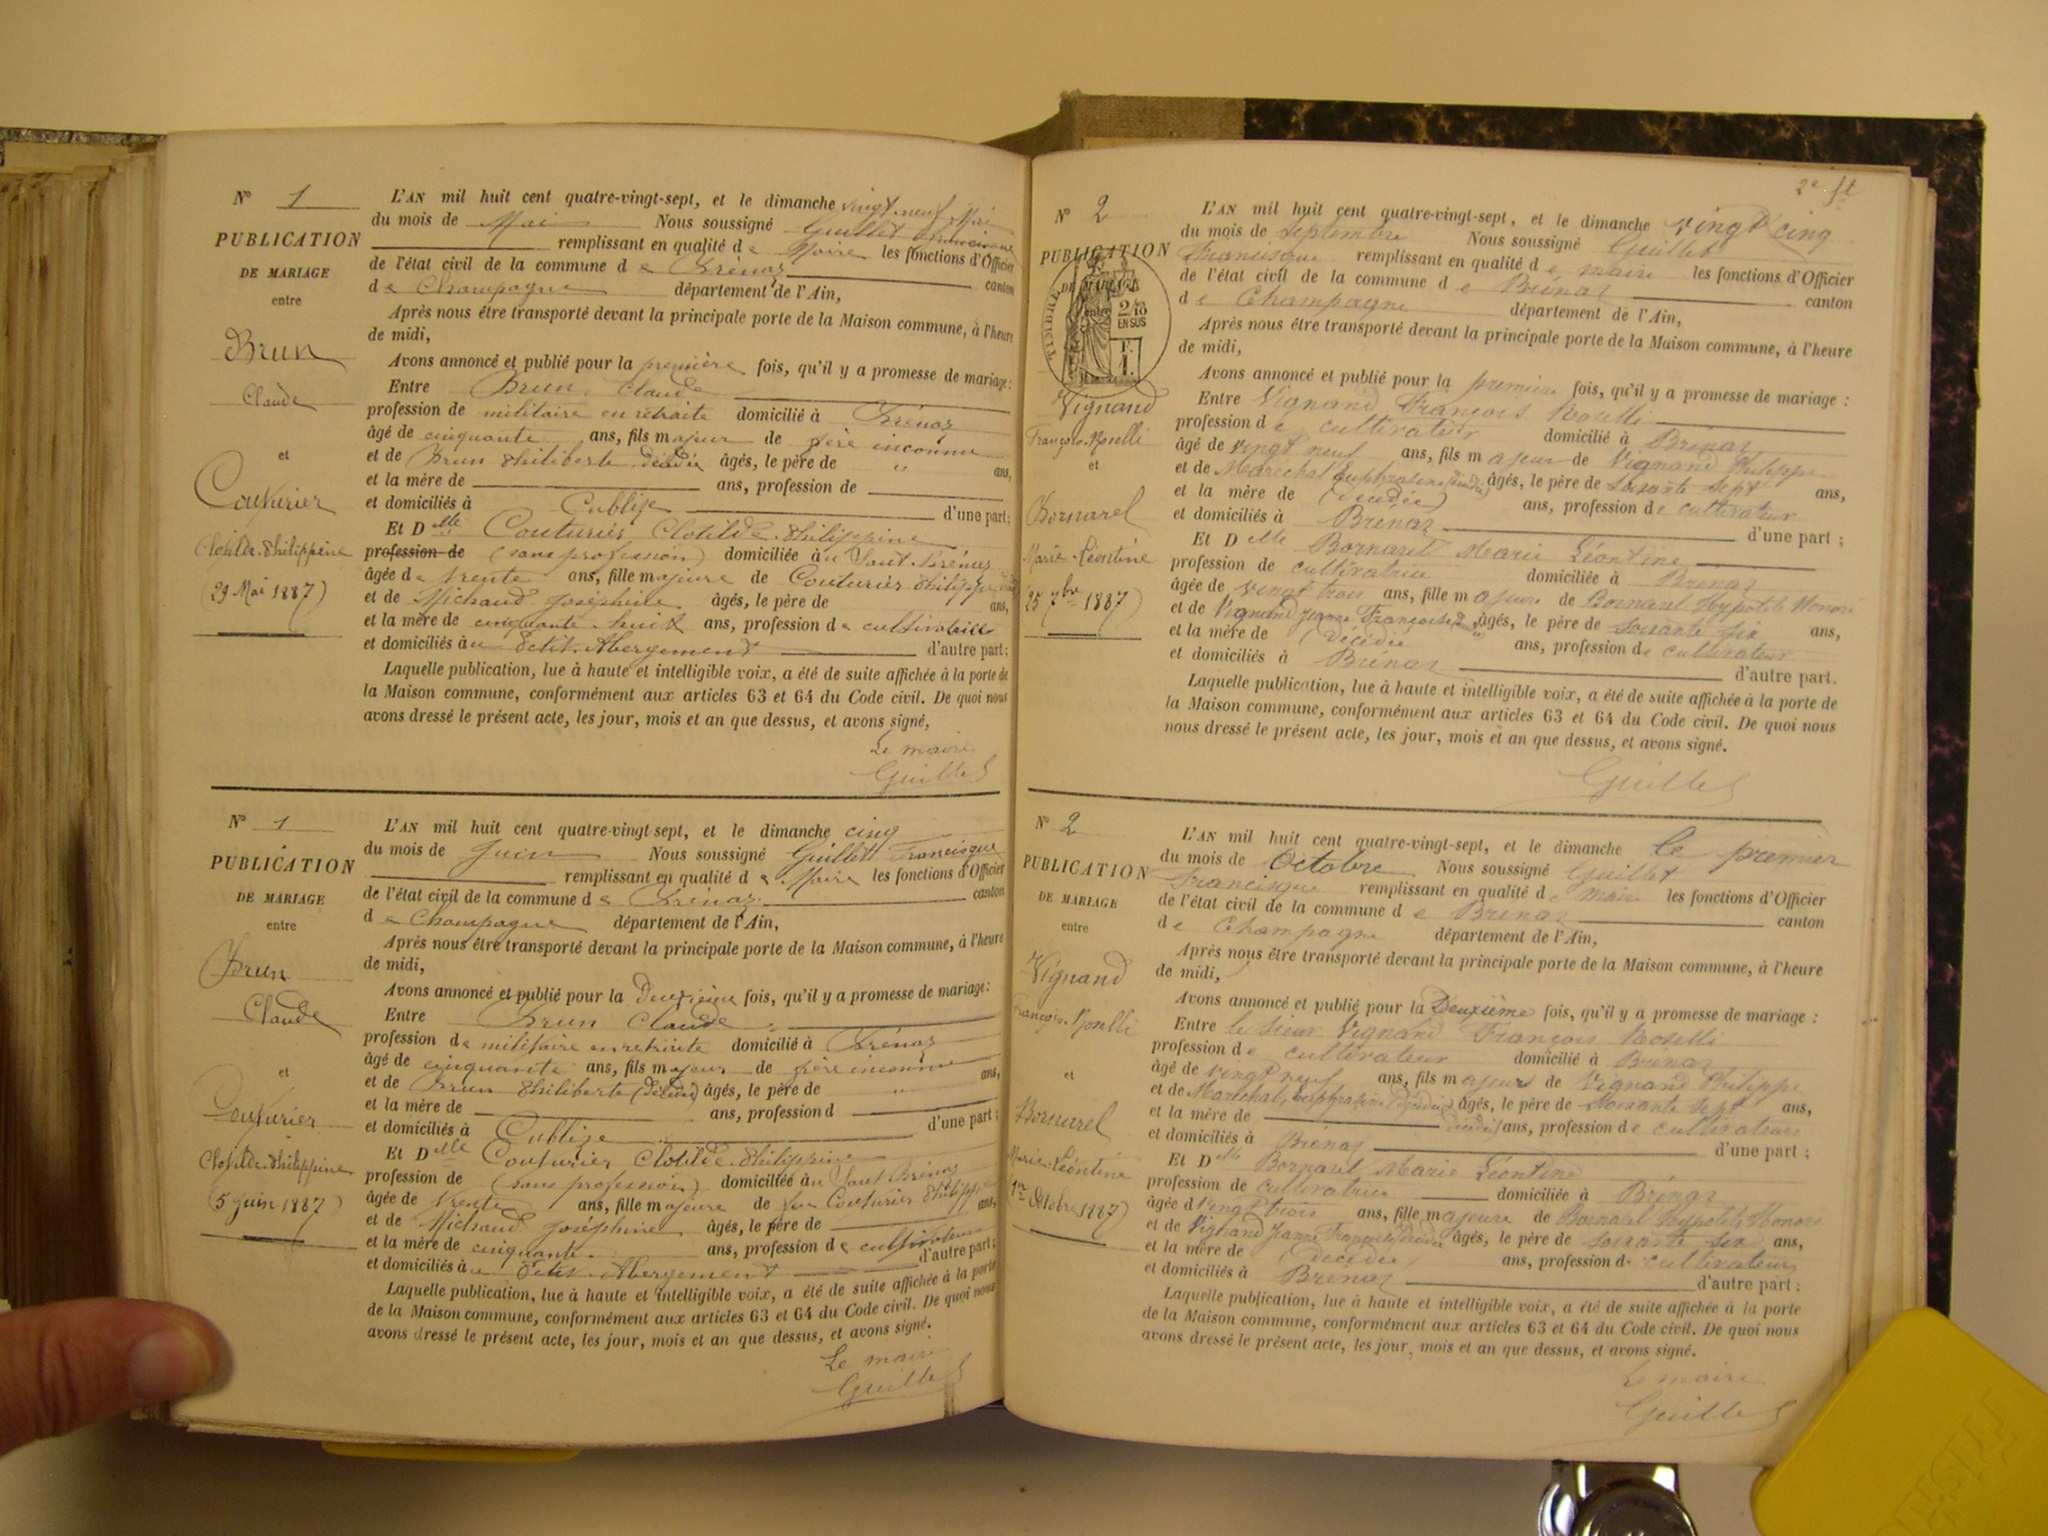 N° 1
PUBLICATION
DE MARIAGE
entre
Brun
Claude
et
Couturier
Clotilde Philippine
(29 Mai 1887)
L'AN mil huit cent quatre-vingt-sept, et le dimanche vingt neuf Mai
du mois de Mai Nous soussigné Guillet Francisque
remplissant en qualité de Maire les fonctions d'Officier
de l'état civil de la commune de Brénaz canton
de Champagne département de l'Ain,
Après nous être transporté devant la principale porte de la Maison commune, à l'heure
de midi,
Avons annoncé et publié pour la première fois, qu'il y a promesse de mariage :
Entre Brun Claude
profession de militaire en retraite domicilié à Brénaz
âgé de cinquante ans, fils majeur de père inconnu
et de Brun Philiberte décédée âgés, le père de " ans,
et la mère de ans, profession de
et domiciliés à Cublize d'une part ;
Et Delle Couturier Clotilde Philippine
profession de (sans profession) domiciliée à
âgée de trente ans, fille majeure de Couturier Philippe
et de Michaud Joséphine âgés, le père de ans,
et la mère de cinquante huit ans, profession de cultivatrice
et domiciliés au Petit Abergement d'autre part :
Laquelle publication, lue à haute et intelligible voix, a été de suite affichée à la porte de
la Maison commune, conformément aux articles 63 et 64 du Code civil. De quoi nous
avons dressé le présent acte, les jour, mois et an que dessus, et avons signé,
Le maire
Guillet
N° 1
PUBLICATION
DE MARIAGE
entre
Brun
Claude
et
Couturier
Clotilde Philippine
(5 Juin 1887)
L'AN mil huit cent quatre-vingt-sept, et le dimanche cinq
du mois de Juin Nous soussigné Guillet Francisque
remplissant en qualité de Maire les fonctions d'Officier
de l'état civil de la commune de Brénaz canton
de Champagne département de l'Ain,
Après nous être transporté devant la principale porte de la Maison commune, à l'heure
de midi,
Avons annoncé et publié pour la Deuxième fois, qu'il y a promesse de mariage :
Entre Brun Claude
profession de militaire en retraite domicilié à Brénaz
âgé de cinquante ans, fils majeur de père inconnu
et de Brun Philiberte (décédée) âgés, le père de " ans,
et la mère de ans, profession d
et domiciliés à Cublize d'une part ;
Et Delle Couturier Clotilde Philippine
profession de (sans profession) domiciliée à
âgée de trente ans, fille majeure de feu Couturier Philippe
et de Michaud Joséphine âgés, le père de ans,
et la mère de cinquante ans, profession de cultivateurs
et domiciliés à Petit Abergement d'autre part ;
Laquelle publication, lue à haute et intelligible voix, a été de suite affichée à la porte
de la Maison commune, conformément aux articles 63 et 64 du Code civil. De quoi nous
avons dressé le présent acte, les jour, mois et an que dessus, et avons signé.
Le maire
Guillet
2e ft
N° 2
PUBLICATION
DE MARIAGE
entre
TIMBRE
2/10
EN SUS
F.
1.
Vignand
François Roselli
et
Bornarel
Marie Léontine
(25 7bre 1887)
L'AN mil huit cent quatre-vingt-sept, et le dimanche vingt cinq
du mois de Septembre Nous soussigné Guillet
Francisque remplissant en qualité de maire les fonctions d'Officier
de l'état civil de la commune de Brénaz canton
de Champagne département de l'Ain,
Après nous être transporté devant la principale porte de la Maison commune, à l'heure
de midi,
Avons annoncé et publié pour la première fois, qu'il y a promesse de mariage :
Entre Vignand François Roselli
profession de cultivateur domicilié à Brénaz
âgé de vingt neuf ans, fils majeur de Vignand Philippe
et de Maréchal Euphrasine (décédée) âgés, le père de soixante sept ans,
et la mère de (décédée) ans, profession de cultivateur
et domiciliés à Brénaz d'une part ;
Et Delle Bornarel Marie Léontine
profession de cultivatrice domiciliée à Brénaz
âgée de vingt trois ans, fille majeure de Bornarel Hypolite Honoré
et de Vignand Jeanne Françoise âgés, le père de soixante six ans,
et la mère de (décédée ans, profession de cultivateur
et domiciliés à Brénaz d'autre part.
Laquelle publication, lue à haute et intelligible voix, a été de suite affichée à la porte de
la Maison commune, conformément aux articles 63 et 64 du Code civil. De quoi nous
nous dressé le présent acte, les jour, mois et an que dessus, et avons signé.
Guillet
N° 2
PUBLICATION
DE MARIAGE
entre
Vignand
François Roselli
et
Bornarel
Marie Léontine
1er Octobre 1887)
L'AN mil huit cent quatre-vingt-sept, et le dimanche le premier
du mois de Octobre Nous soussigné Guillet
Francisque remplissant en qualité de maire les fonctions d'Officier
de l'état civil de la commune de Brénaz canton
de Champagne département de l'Ain,
Après nous être transporté devant la principale porte de la Maison commune, à l'heure
de midi,
Avons annoncé et publié pour la Deuxième fois, qu'il y a promesse de mariage :
Entre le sieur Vignand François Roselli
profession de cultivateur domicilié à Brénaz
âgé de vingt neuf ans, fils majeurs de Vignand Philippe
et de Maréchal Euphrasine (décédée) âgés, le père de soixante sept ans,
et la mère de décédée ans, profession de cultivateur
et domiciliés à Brénaz d'une part ;
Et Delle Bornarel Marie Léontine
profession de cultivatrice domiciliée à Brénaz
âgée d vingt trois ans, fille majeure de Bornarel Hypolite Honoré
et de Vignand Jeanne Françoise décédée âgés, le père de soixante six ans,
et la mère de (décédée) ans, profession de cultivateur
et domiciliés à Brénaz d'autre part ;
Laquelle publication, lue à haute et intelligible voix, a été de suite affichée à la porte
de la Maison commune, conformément aux articles 63 et 64 du Code civil. De quoi nous
avons dressé le présent acte, les jour, mois et an que dessus, et avons signé.
Le maire
Guillet